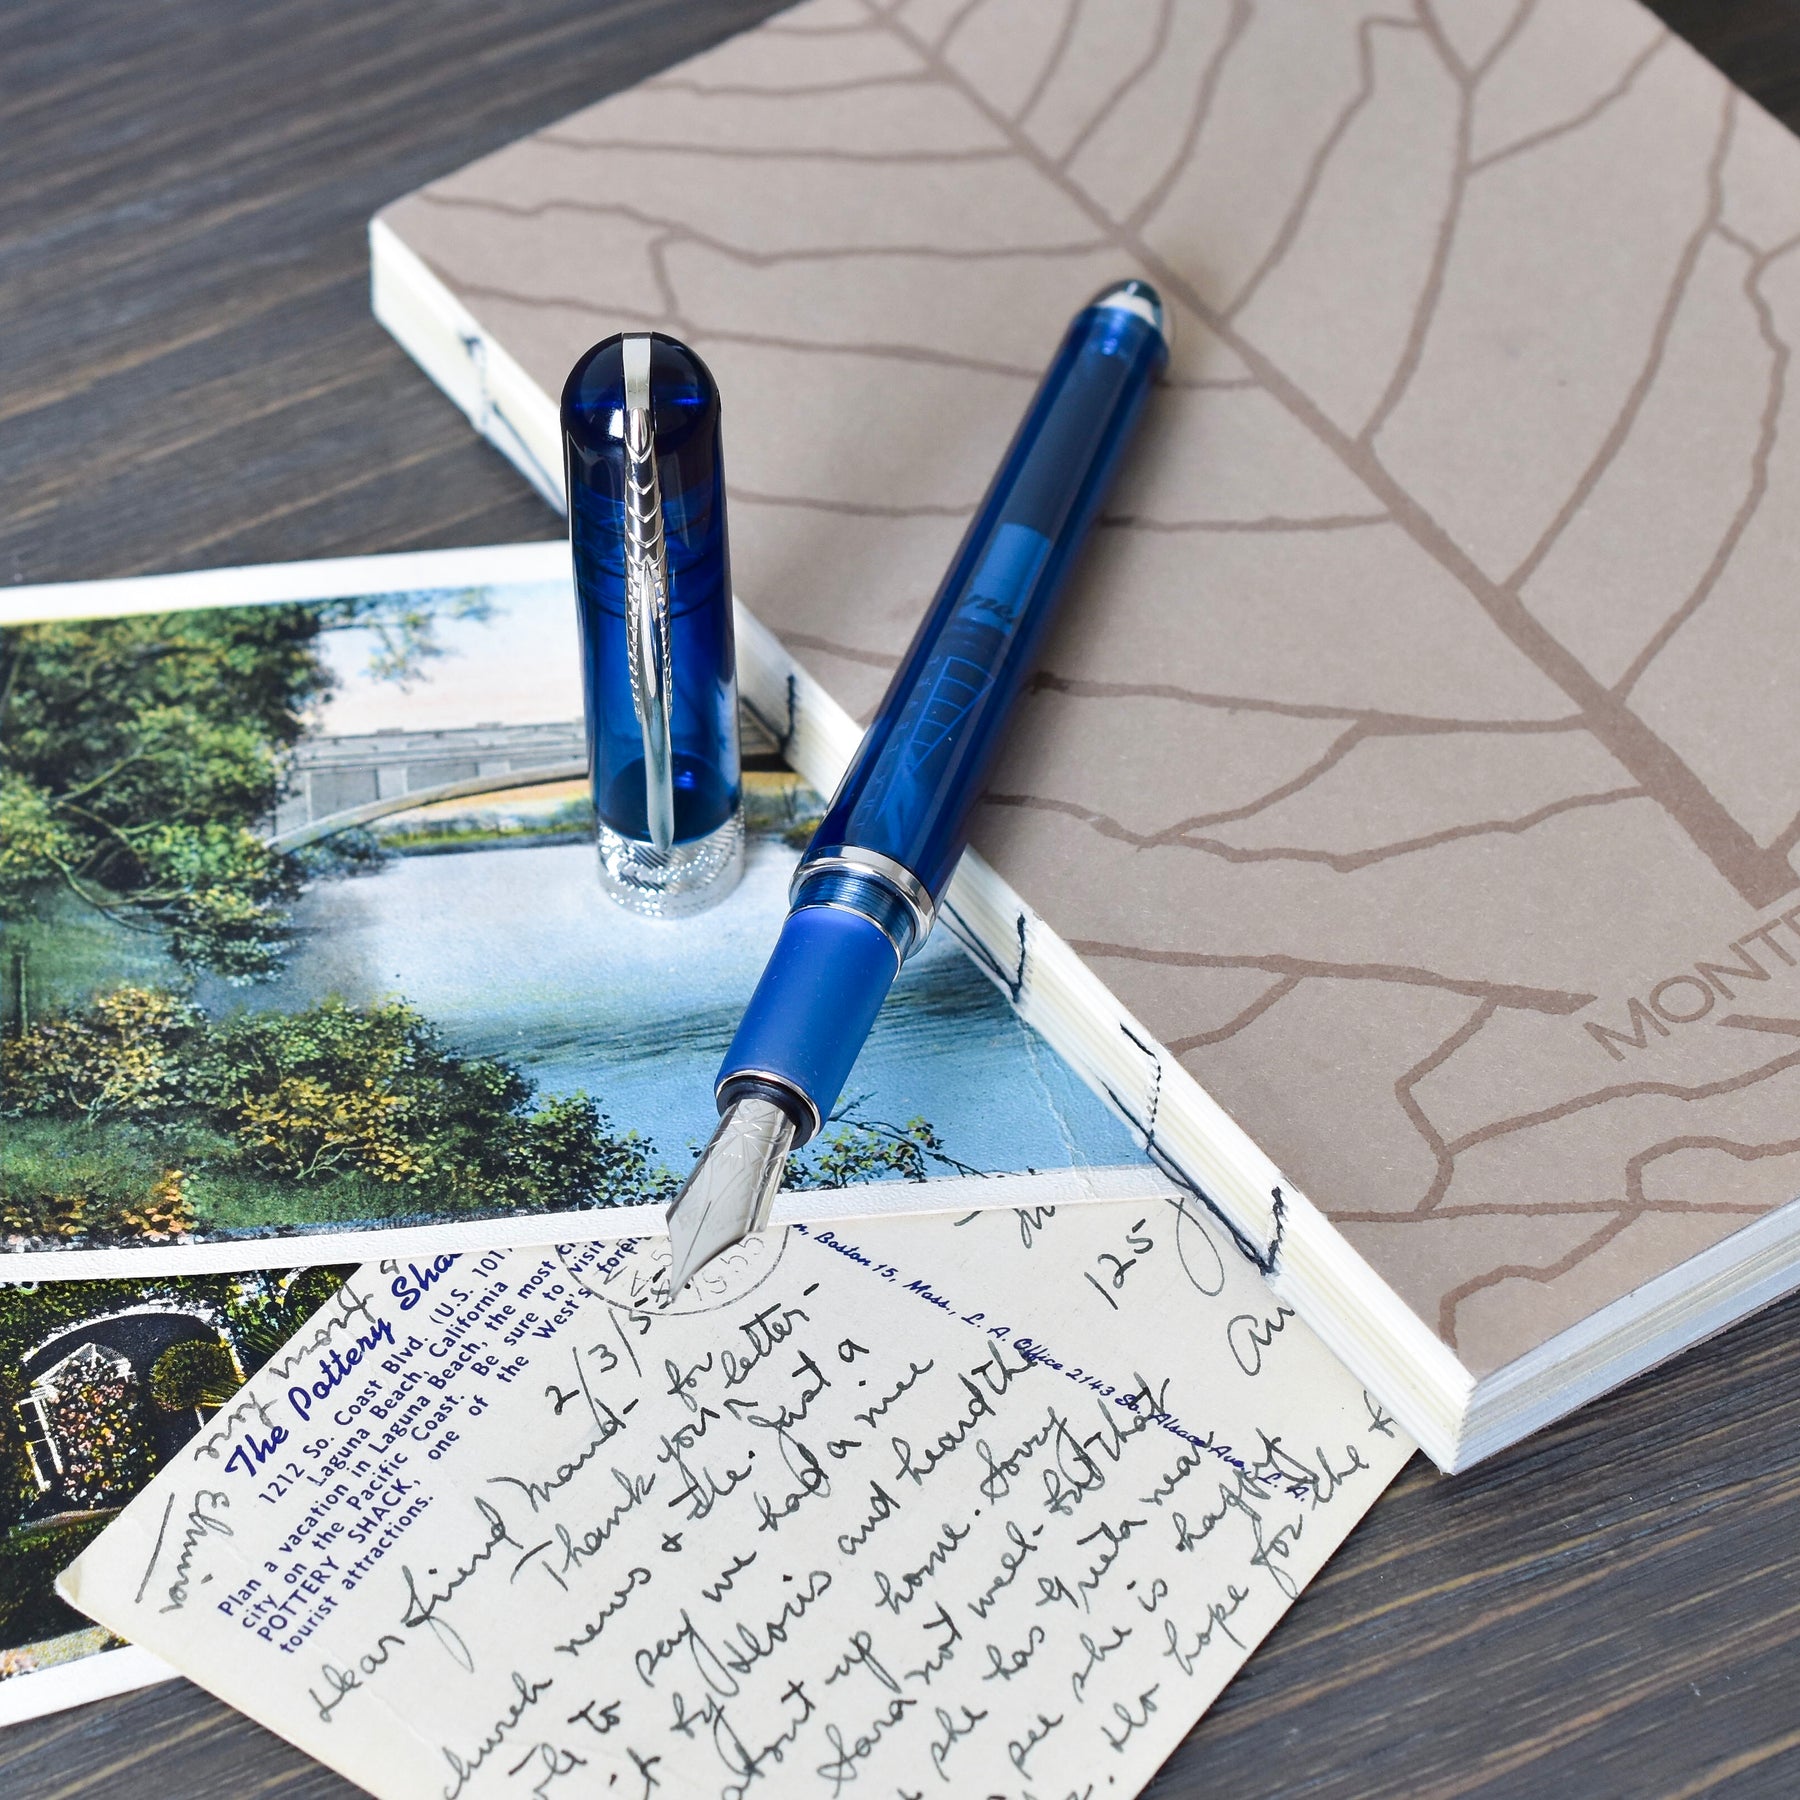 MONTE
The Pottery Sha
1212 So. Coast Blvd. (U.S. 101
Laguna Beach, California
Plan a vacation in Laguna Beach, the most
city on the Pacific Coast. Be sure to visit
POTTERY SHACK, one of the West's foreig
tourist attractions.
from your
Elmina
n, Boston 15, Mass., L. A. Office 2143 So. Alsace Ave., L. A.
125
2/3/5
Dear friend Maud-
Thank you for
church news & the letter-
to pay we had a nice
it by Doris and heard the
about up home. Sorry
Sara not well- but that
she has Greta near
see she is happy
Do hope for the